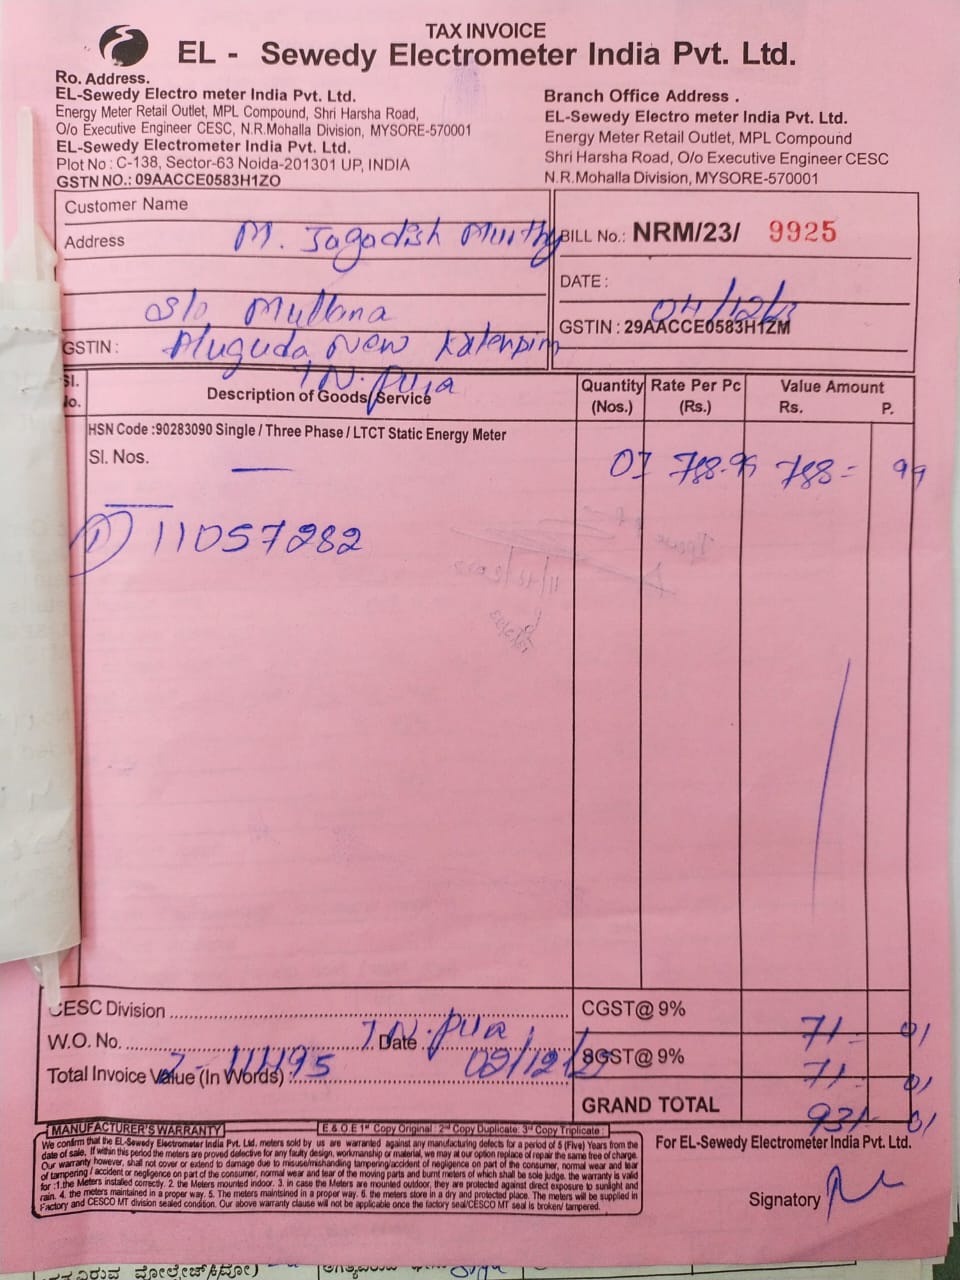 TAX INVOICE
EL - Sewedy Electrometer India Pvt. Ltd.
Ro. Address.
EL-Sewedy Electro meter India Pvt. Ltd.
Energy Meter Retail Outlet, MPL Compound, Shri Harsha Road,
O/o Executive Engineer CESC, N.R.Mohalla Division, MYSORE-570001
EL-Sewedy Electrometer India Pvt. Ltd.
Plot No : C-138, Sector-63 Noida-201301 UP, INDIA
GSTN NO.: 09AACCE0583H1ZO
Branch Office Address .
EL-Sewedy Electro meter India Pvt. Ltd.
Energy Meter Retail Outlet, MPL Compound
Shri Harsha Road, O/o Executive Engineer CESC
N.R.Mohalla Division, MYSORE-570001
Customer Name
Address M. Jagadish Murthy
S/o Mullana
GSTIN : New
T.N.pura
BILL No.: NRM/23/ 9925
DATE : 04/12/23
GSTIN : 29AACCE0583H1ZM
Sl. No. Description of Goods/Service Quantity (Nos.) Rate Per Pc (Rs.) Value Amount Rs. P.
HSN Code :90283090 Single / Three Phase / LTCT Static Energy Meter
Sl. Nos. 01 788.99 788= 99
1) 11057282
CESC Division T.N.pura
W.O. No. Date
Total Invoice Value (In Words) :
CGST@ 9% 71 01
SGST@ 9% 71 01
GRAND TOTAL 931 01
MANUFACTURER'S WARRANTY E & O E 1st Copy Original : 2nd Copy Duplicate: 3rd Copy Triplicate :
We confirm that the EL-Sewedy Electrometer India Pvt. Ltd. meters sold by us are warranted against any manufacturing defects for a period of 5 (Five) Years from the
date of sale, If within this period the meters are proved defective for any faulty design, workmanship or material, we may at our option replace of repair the same free of charge.
Our warranty however, shall not cover or extend to damage due to misuse/mishandling tampering/accident of negligence on part of the consumer, normal wear and tear
of tampering / accident or negligence on part of the consumer, normal wear and tear of the moving parts and burnt meters of which shall be sole judge. the warranty is valid
for :1.the Meters installed correctly. 2. the Meters mounted indoor. 3. in case the Meters are mounted outdoor, they are protected against direct exposure to sunlight and
rain. 4. the meters maintained in a proper way. 5. The meters maintsined in a proper way. 6. the meters store in a dry and protected place. The meters will be supplied in
Factory and CESCO MT division sealed condition. Our above warranty clause will not be applicable once the factory seal/CESCO MT seal is broken/ tampered.
For EL-Sewedy Electrometer India Pvt. Ltd.
Signatory